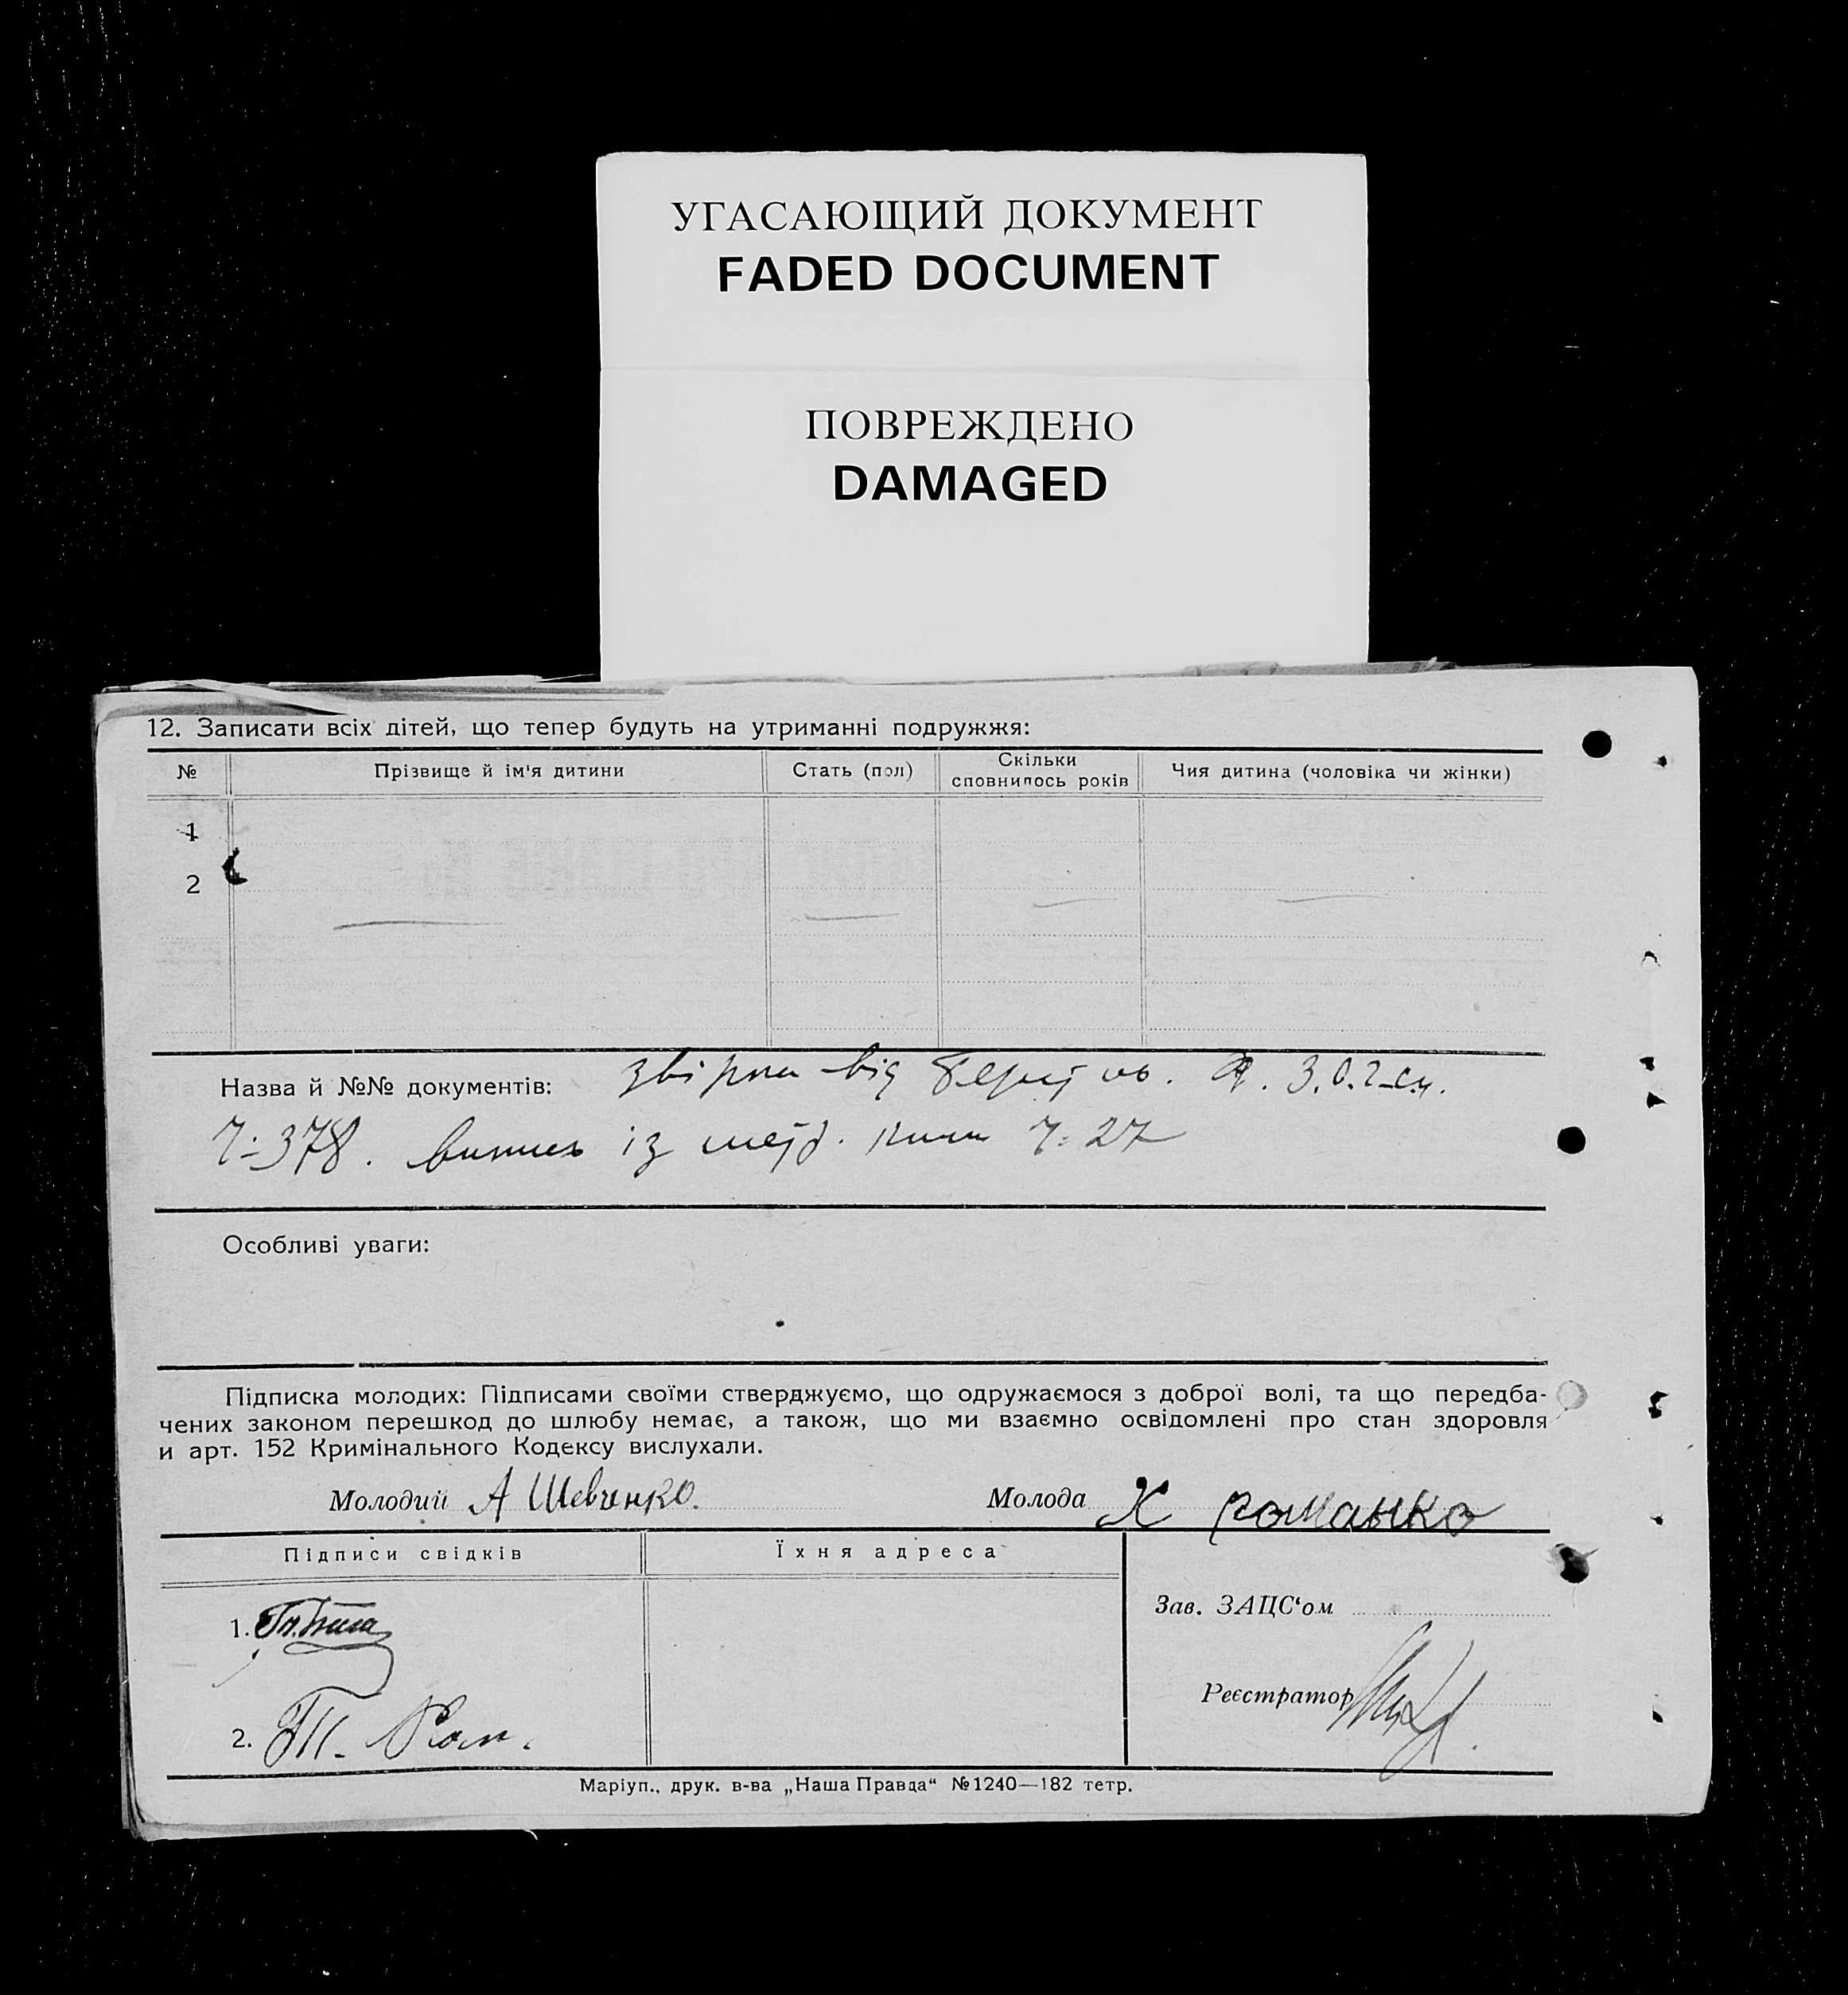 УГАСАЮЩИЙ ДОКУМЕНТ
FADED DOCUMENT
ПОВРЕЖДЕНО
DAMAGED
12. Записати всіх дітей, що тепер будуть на утриманні подружжя:
№ Прізвище й ім'я дитини Стать (пол) Скільки сповнилось років Чия дитина (чоловіка чи жінки)
1
2
Назва й №№ документів: від
378. із 27
Особливі уваги:
Підписка молодих: Підписами своїми стверджуємо, що одружаємося з доброї волі, та що передба-
чених законом перешкод до шлюбу немає, а також, що ми взаємно освідомлені про стан здоровля
и арт. 152 Кримінального Кодексу вислухали.
Молодий А Шевченко. Молода Х романко
Підписи свідків Їхня адреса
Зав. ЗАЦС‘ом
1.
Реєстратор
2.
Маріуп., друк. в-ва „Наша Правда“ №1240—182 тетр.